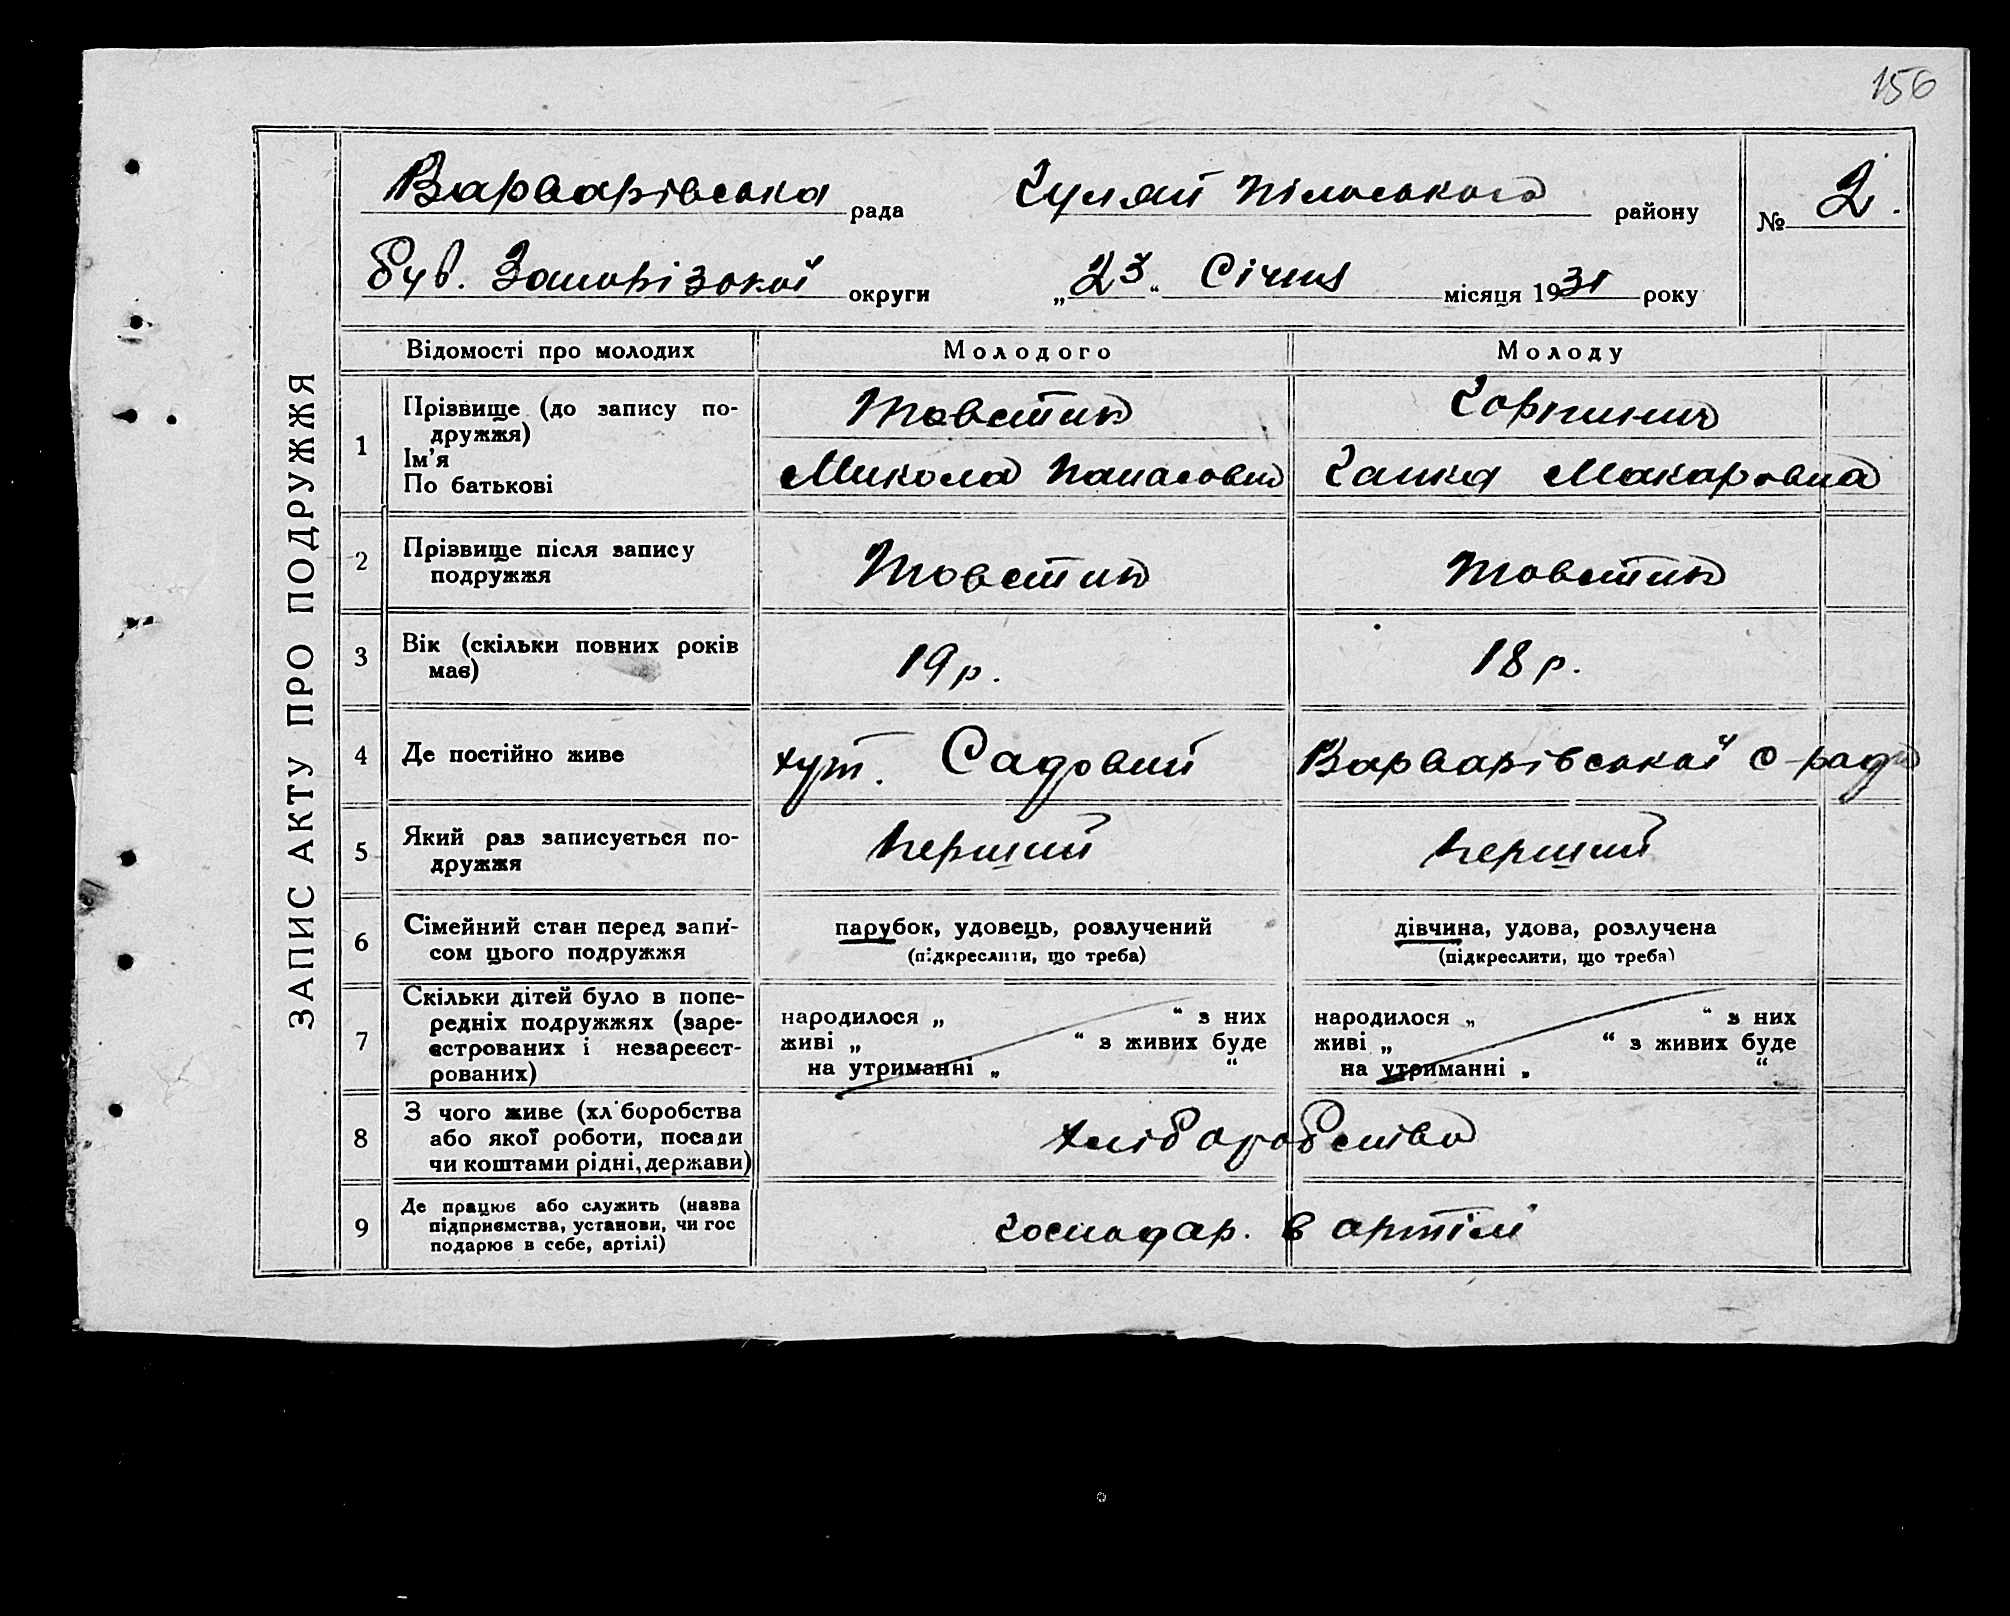 156
Варварівська рада Гуляй Пільського району № 2.
був. Запорізької округи „23“ Січня місяця 1931 року
ЗАПИС АКТУ ПРО ПОДРУЖЖЯ
Відомості про молодих Молодого Молоду
1 Прізвище (до запису по-
дружжя)
Ім’я
По батькові
Товстик
Микола Панасович
Ганка Макаровна
2 Прізвище після запису
подружжя
Товстик Товстик
3 Вік (скільки повних років
має)
19 р. 18 р.
4 Де постійно живе хут. Садовий Варварівської с-ради
5 Який раз записується по-
дружжя
Перший Перший
6 Сімейний стан перед запи-
сом цього подружжя
парубок, удовець, розлучений
(підкреслити, що треба)
дівчина, удова, розлучена
(підкреслити, що треба)
7 Скільки дітей було в попе-
редніх подружжях (заре-
єстрованих і незареєст-
рованих)
народилося „ “ з них
живі „ “ з живих буде
на утриманні „ “
народилося „ “ з них
живі „ “ з живих буде
на утриманні „ “
8 З чого живе (хліборобства
або якої роботи, посади
чи коштами рідні, держави)
хліборобство
9 Де працює або служить (назва
підприємства, установи, чи гос
подарює в себе, артілі)
господар. в артілі